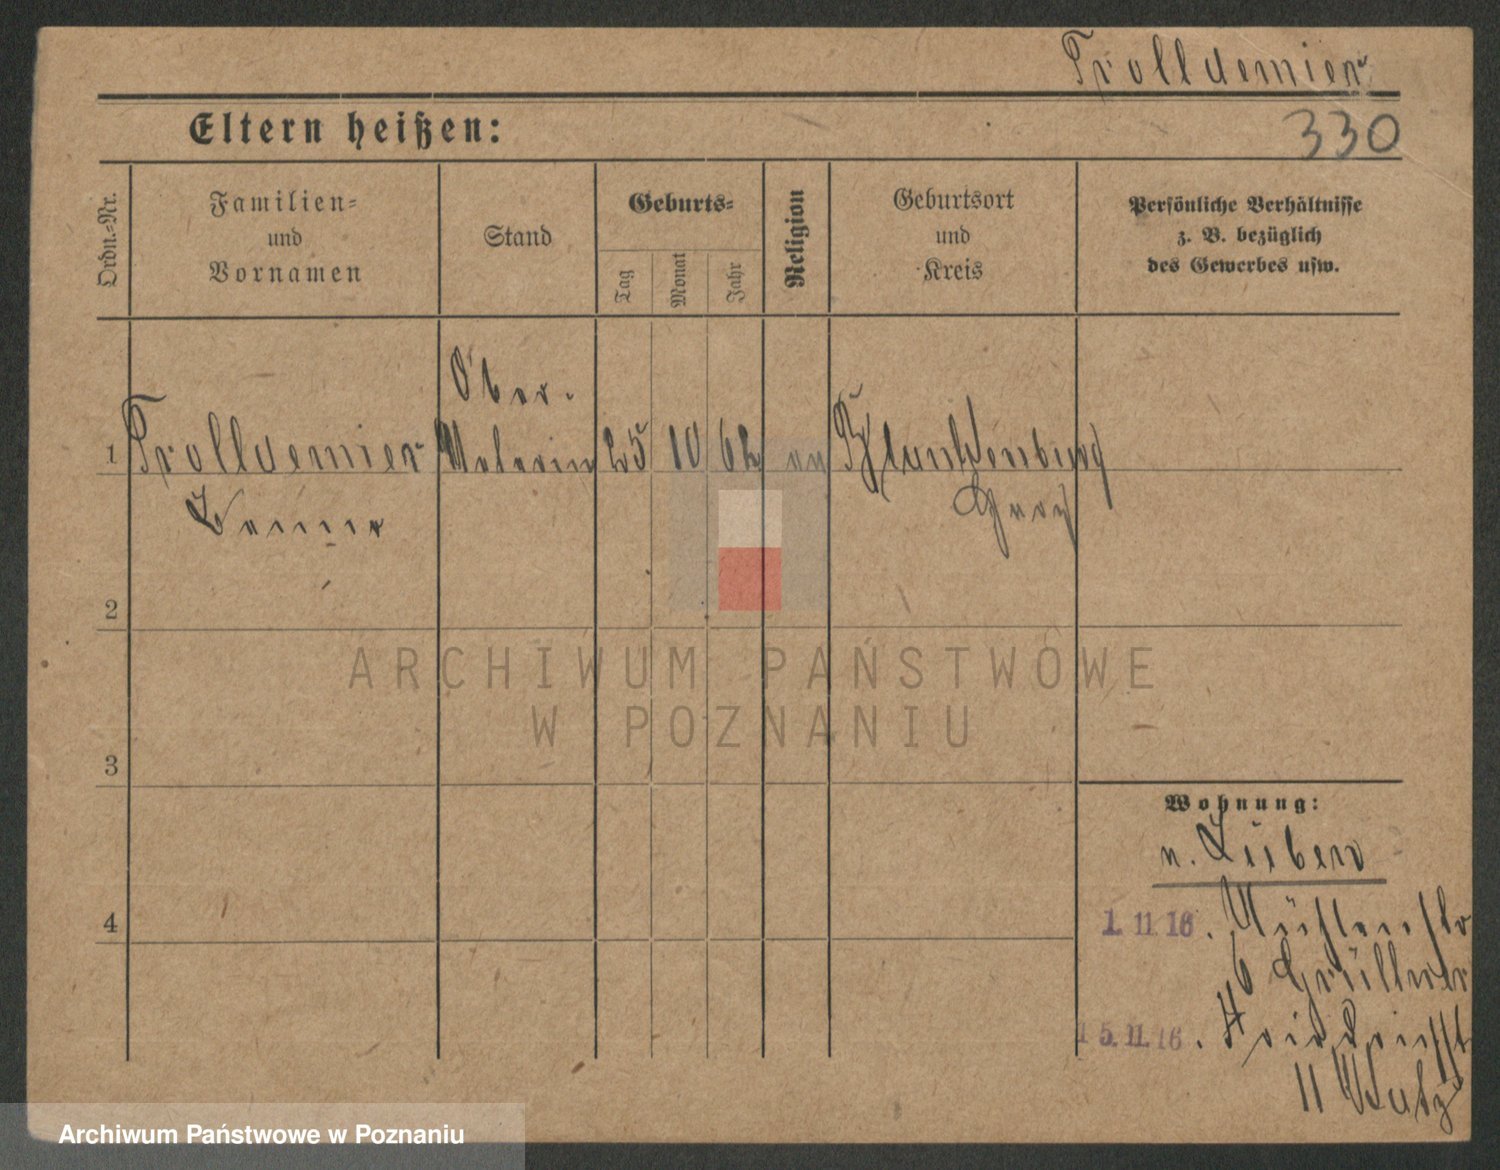 Trolldemier
330
Eltern heißen:
Ordn.-Nr.
Familien-
und
Vornamen
Stand
Geburts-
Tag
Monat
Jahr
Religion
Geburtsort
und
Kreis
Persönliche Verhältnisse
z. B. bezüglich
des Gewerbes usw.
Ober-
1 Trolldemier 25 10 62 ev Blankenburg
Harz
2
3
4
Wohnung:
n. Lüben
1. 11. 16.
6
15. 11. 16.
11
ARCHIWUM PAŃSTWOWE
W POZNANIU
Archiwum Państwowe w Poznaniu